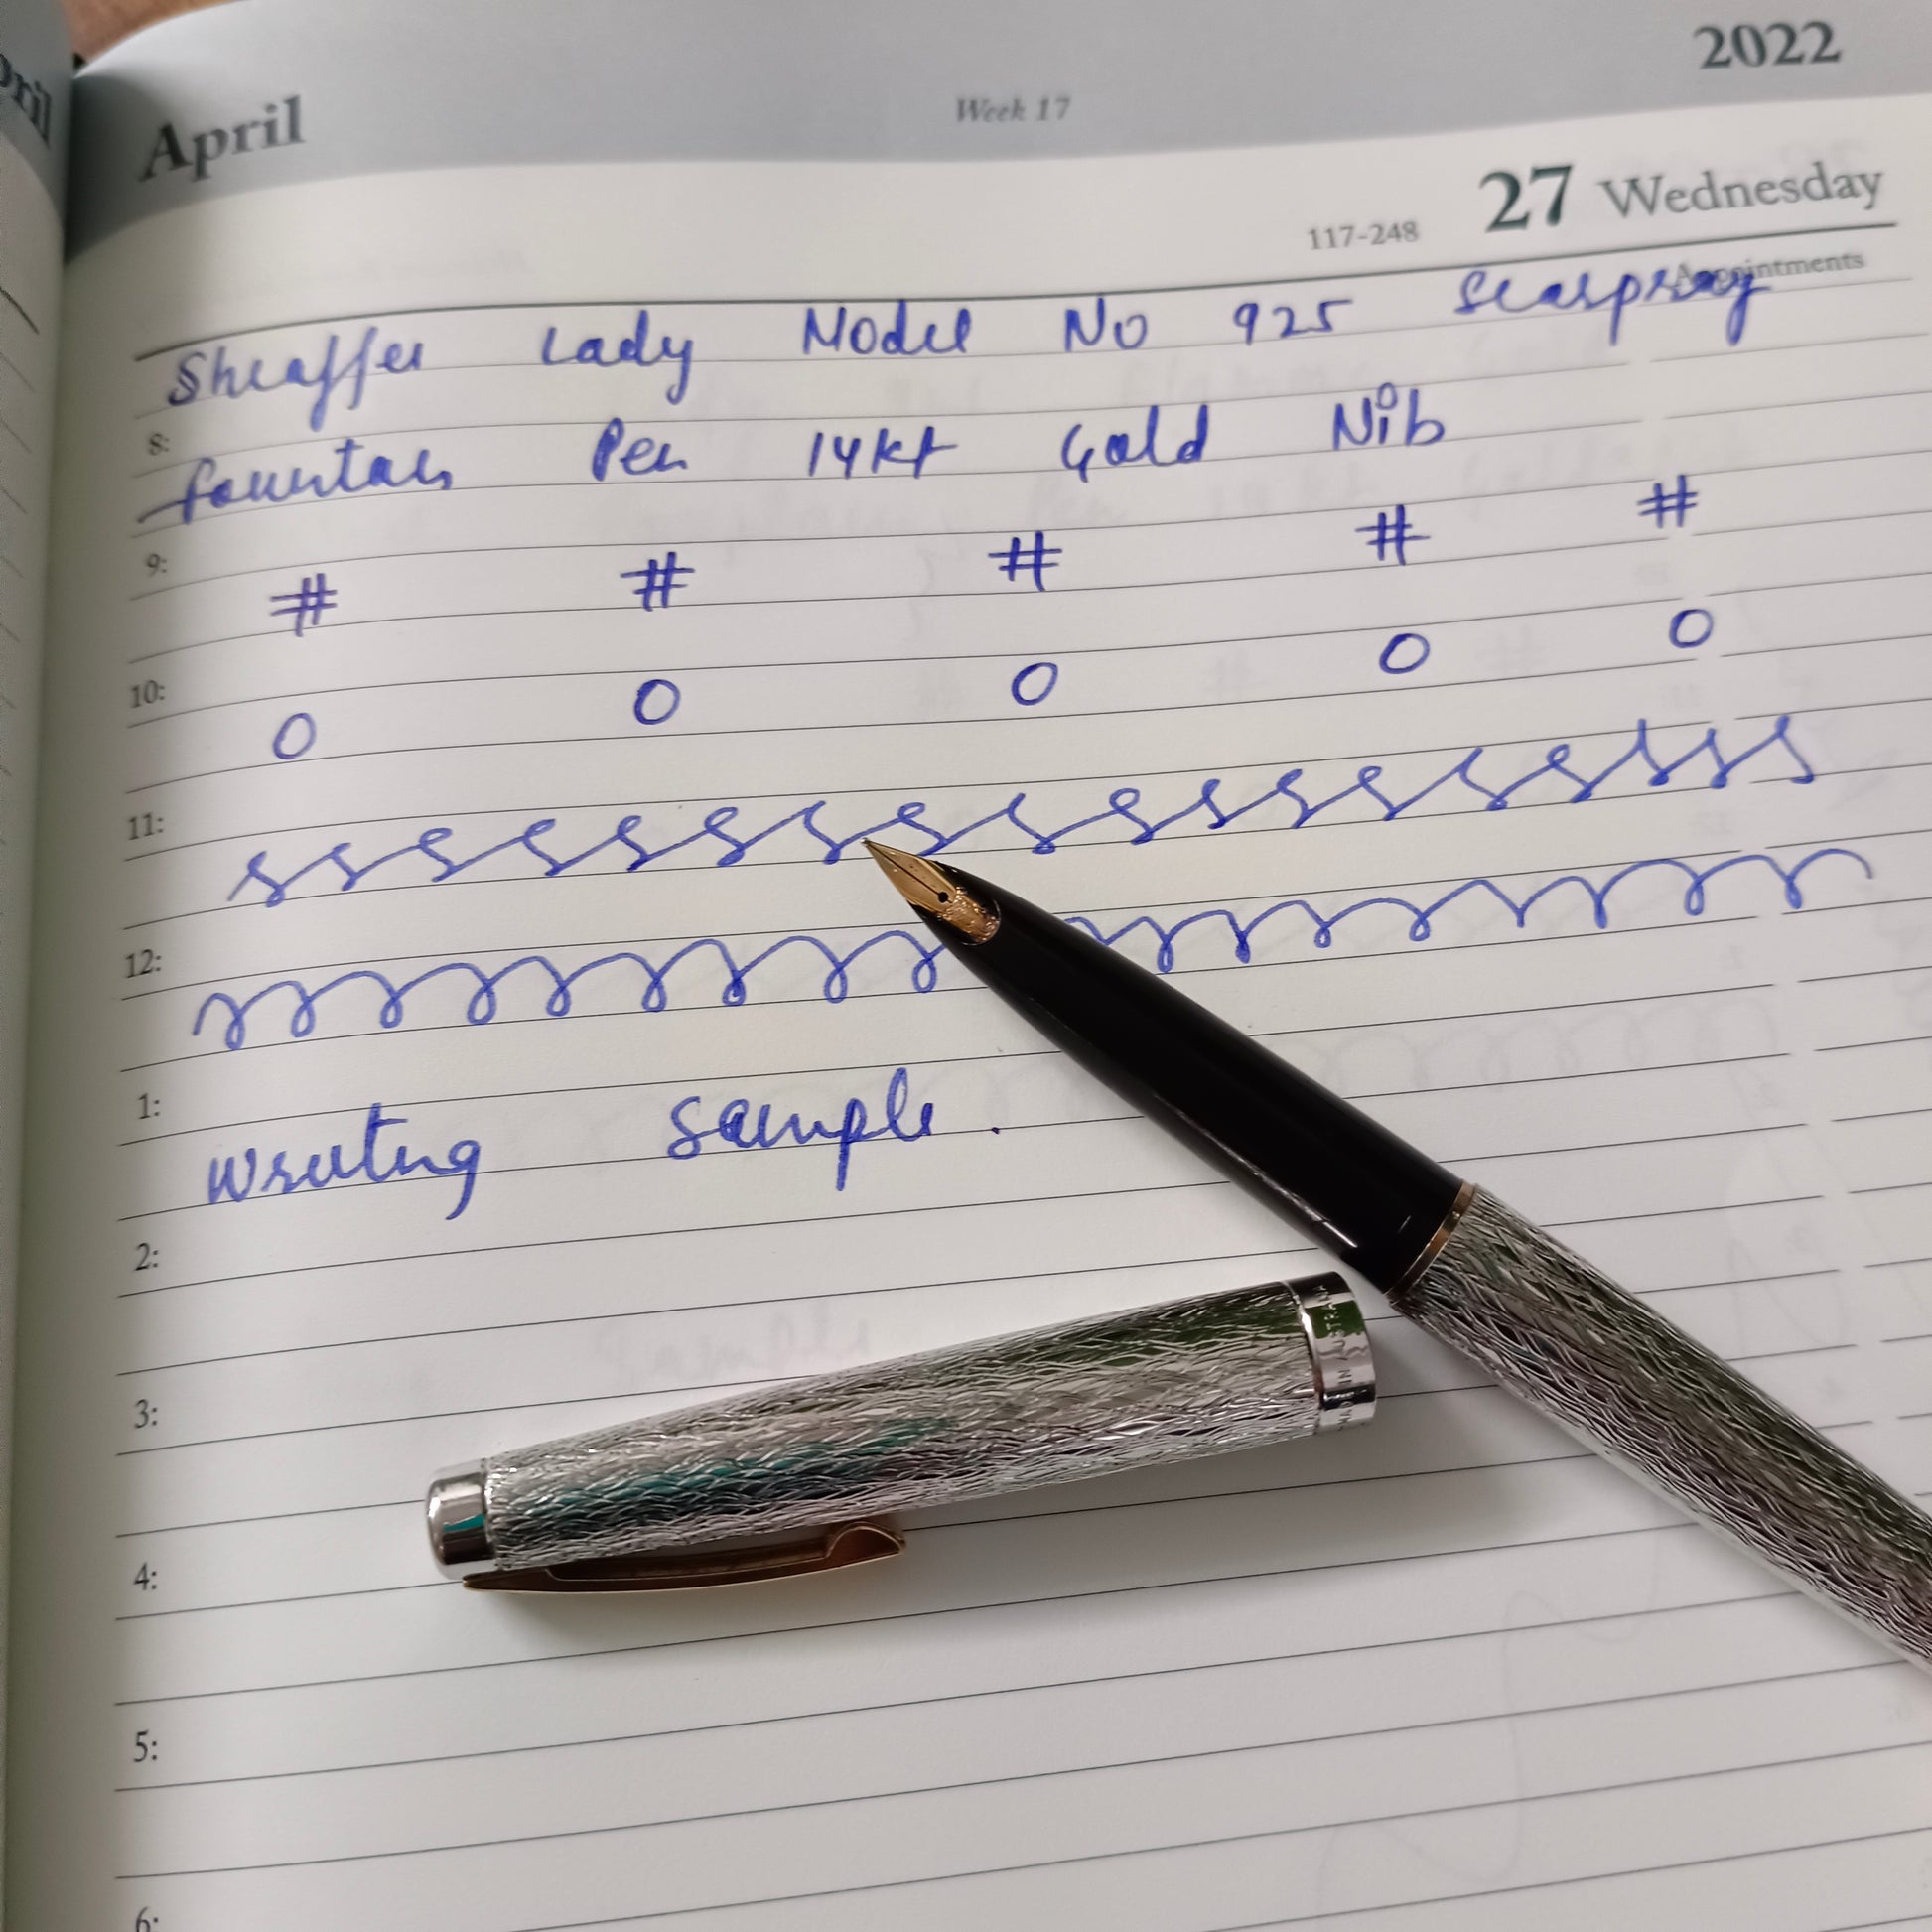 April Week 17 2022
117-248 27 Wednesday
Appointments
Sheaffer Lady Model No 925 Seaspray
8:
fountain Pen 14kt Gold Nib
9:
# # # # #
10:
O O O O O
11:
12:
1:
Writing Sample.
2:
3:
4:
5:
6: